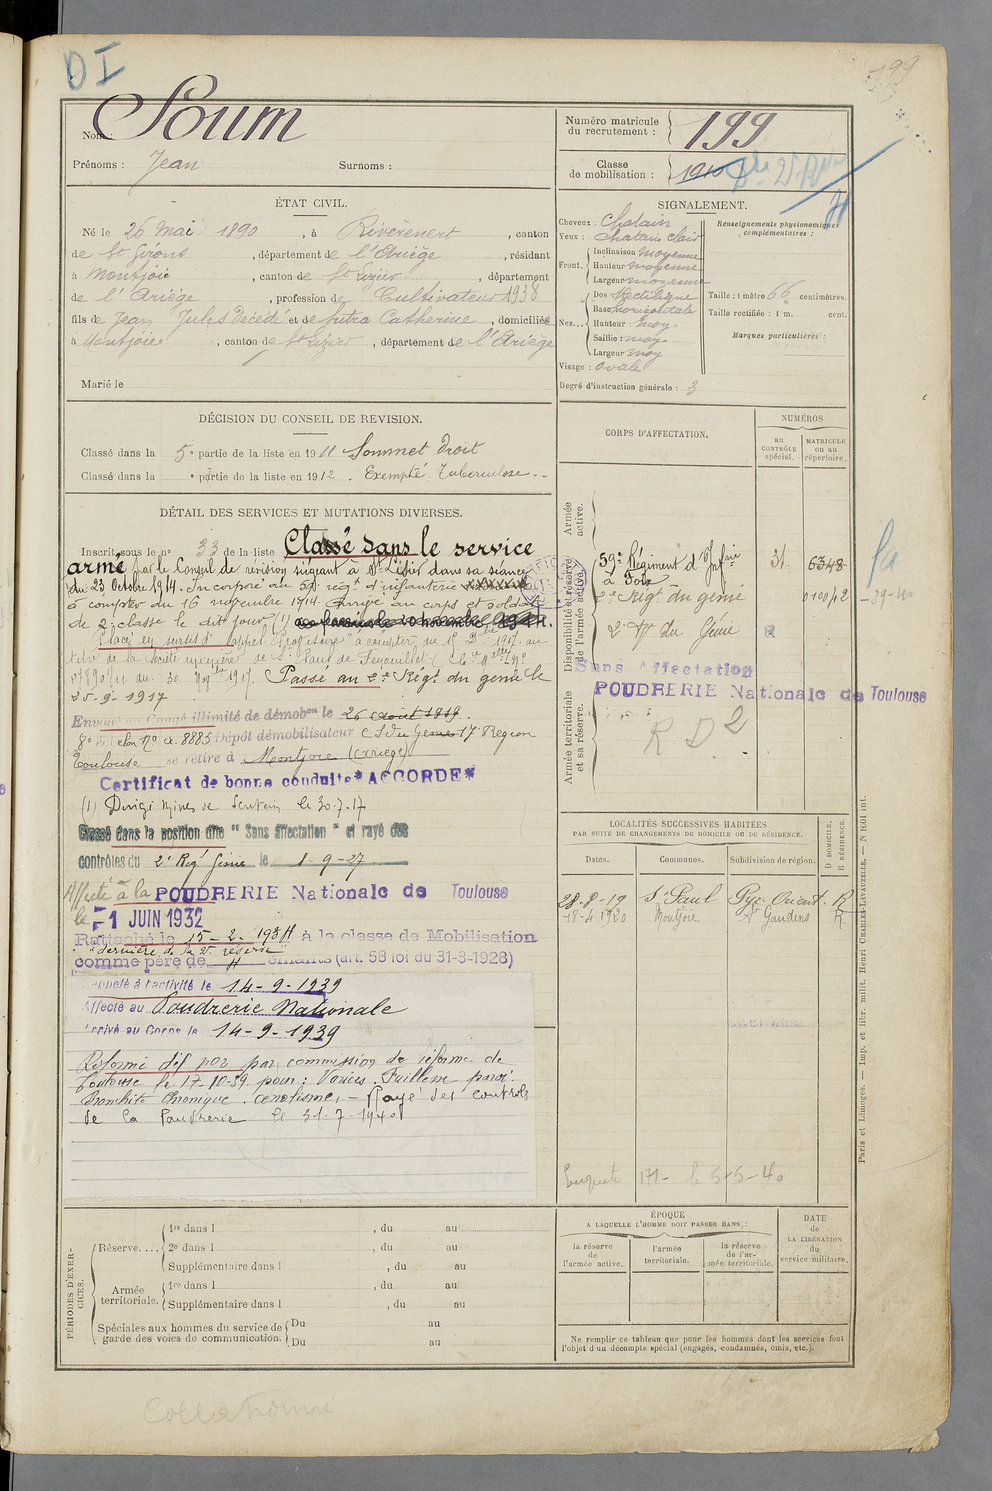 DI
199
Nom
Soum
Prénoms : Jean
Surnoms :
Numéro matricule du recrutement : 199
Classe de mobilisation : 1910
ÉTAT CIVIL.
Né le 26 Mai 1890 , à Rivèrenert , canton
de St Girons , département de l'Ariège , résidant
à Montjoie , canton de St Lizier , département
de l'Ariège , profession de Cultivateur 1938
fils de Jean Jules Décédé et de Catherine , domiciliés
à Montjoie , canton de St Lizier , département de l'Ariège
Marié le
SIGNALEMENT.
Cheveux : Chatain
Yeux : chatain clair
Front. Inclinaison moyenne
Hauteur moyenne
Largeur moyenne
Nez... Dos Rectiligne
Base horizontale
Hauteur : moy.
Saillie : moy.
Largeur moy
Visage : ovale
Degré d'instruction générale : 3
Renseignements physionomiques complémentaires :
Taille : 1 mètre 66 centimètres.
Taille rectifiée : 1 m. cent.
Marques particulières :
DÉCISION DU CONSEIL DE REVISION.
Classé dans la 5e partie de la liste en 1911 Sommet droit
Classé dans la e partie de la liste en 1912 . Exempté. Tuberculose.
DÉTAIL DES SERVICES ET MUTATIONS DIVERSES.
Inscrit sous le no 33 de la liste Classé dans le service
armé par le Conseil de révision siégeant à St Lizier dans sa séance
du 23 Octobre 1914. Incorporé au 59e régt d'infanterie
à compter du 16 novembre 1914. Arrivé au corps et soldat
de 2e classe le dit jour (1)
Placé en sursis d'appel
25-9-1917
Passé au 2e Régt du génie le
Envoyé en Congé illimité de démobon le 26 août 1919.
8e échelon No A. 8885 Dépôt démobilisateur du Génie 17e Région
Toulouse se retire à Montjoie (Ariège)
Certificat de bonne conduite *ACCORDE*
(1) Dirigé mines de Sentein le 30-7-17
Classé dans la position dite " Sans affectation " et rayé des
contrôles du 2e Régt Génie le 1-9-27
Affecté à la POUDRERIE Nationale de Toulouse
le 1 JUIN 1932
Rattaché le 15-2-1934 à la classe de Mobilisation
"dernière de la 2e réserve"
comme père de 4 enfants (art. 58 loi du 31-3-1928)
Rappelé à l'activité le 14-9-1939
Affecté au Poudrerie Nationale
Arrivé au Corps le 14-9-1939
Réformé déf no 2 par commission de réforme de
Toulouse le 17-10-39 pour : Varices.
Bronchite chronique. - Rayé des controls
de la Poudrerie le 31-7-1940
CORPS D'AFFECTATION.
NUMÉROS
AU CONTRÔLE spécial.
MATRICULE OU AU répertoire.
Armée active.
Disponibilité et réserve de l'armée active.
Armée territoriale et sa réserve.
59e Régiment d'Infrie à Foix 31 6348
2e Régt du génie 010042
2e Rt du Génie
Sans Affectation
POUDRERIE Nationale de Toulouse
RD2
LOCALITÉS SUCCESSIVES HABITÉES
PAR SUITE DE CHANGEMENTS DE DOMICILE OU DE RÉSIDENCE.
Dates.
Communes.
Subdivision de région.
D DOMICILE.
R RÉSIDENCE.
28-8-19 St Paul Pyr. Orient. R
18-4-1920 Montjoie St Gaudens R
Enquete 171- le 5-5-40
Paris et Limoges. — Imp. et libr. milit. Henri CHARLES-LAVAUZELLE. — N 1601 int.
PÉRIODES D'EXERCICES.
Réserve....
1re dans l , du au
2e dans l , du au
Supplémentaire dans l , du au
Armée territoriale.
1re dans l , du au
Supplémentaire dans l , du au
Spéciales aux hommes du service de garde des voies de communication.
Du au
Du au
ÉPOQUE
A LAQUELLE L'HOMME DOIT PASSER DANS :
la réserve de l'armée active.
l'armée territoriale.
la réserve de l'armée territoriale.
DATE de LA LIBÉRATION du service militaire.
Ne remplir ce tableau que pour les hommes dont les services font
l'objet d'un décompte spécial (engagés, condamnés, omis, etc.).
Collationné